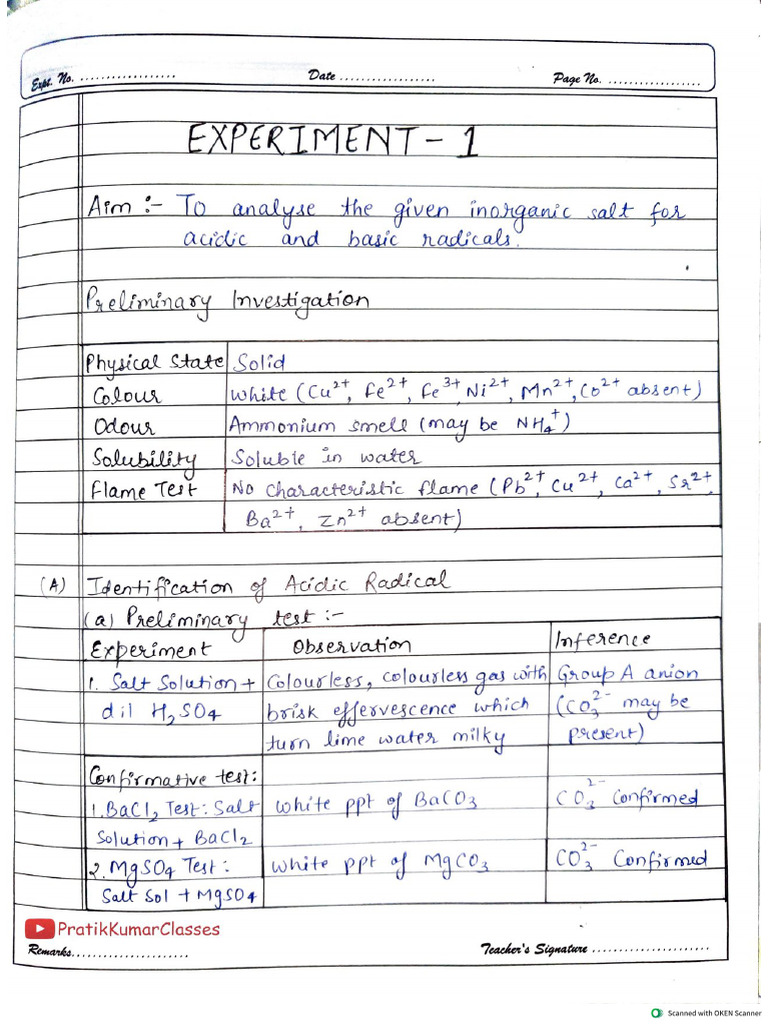 Expt. No. ..................
Date ..................
Page No. ..................
EXPERIMENT - 1
Aim :- To analyse the given inorganic salt for
acidic and basic radicals.
Preliminary Investigation
Physical State Solid
Colour White (Cu²⁺, Fe²⁺, Fe³⁺, Ni²⁺, Mn²⁺, Co²⁺ absent)
Odour Ammonium smell (may be NH₄⁺)
Solubility Soluble in water
Flame Test No characteristic flame (Pb²⁺, Cu²⁺, Ca²⁺, Sr²⁺,
Ba²⁺, Zn²⁺ absent)
(A) Identification of Acidic Radical
(a) Preliminary test :-
Experiment Observation Inference
1. Salt Solution + Colourless, colourless gas with Group A anion
dil H₂SO₄ brisk effervescence which (CO₃²⁻ may be
turn lime water milky present)
Confirmative test:
1. BaCl₂ Test: Salt White ppt of BaCO₃ CO₃²⁻ Confirmed
Solution + BaCl₂
2. MgSO₄ Test: White ppt of MgCO₃ CO₃²⁻ Confirmed
Salt Sol + MgSO₄
PratikKumarClasses
Remarks......................
Teacher's Signature ......................
Scanned with OKEN Scanner